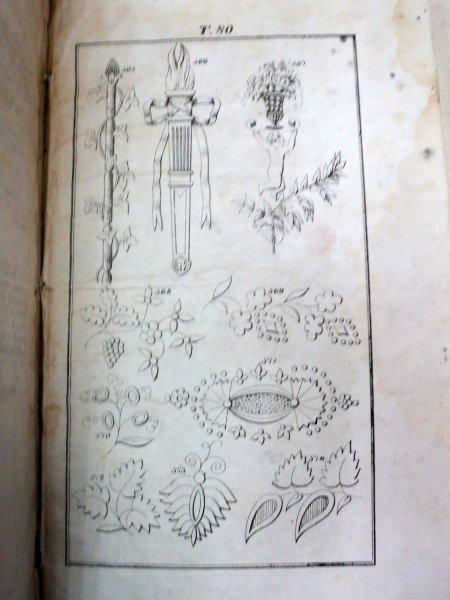 T. 80.
566
567
568
569
570
571